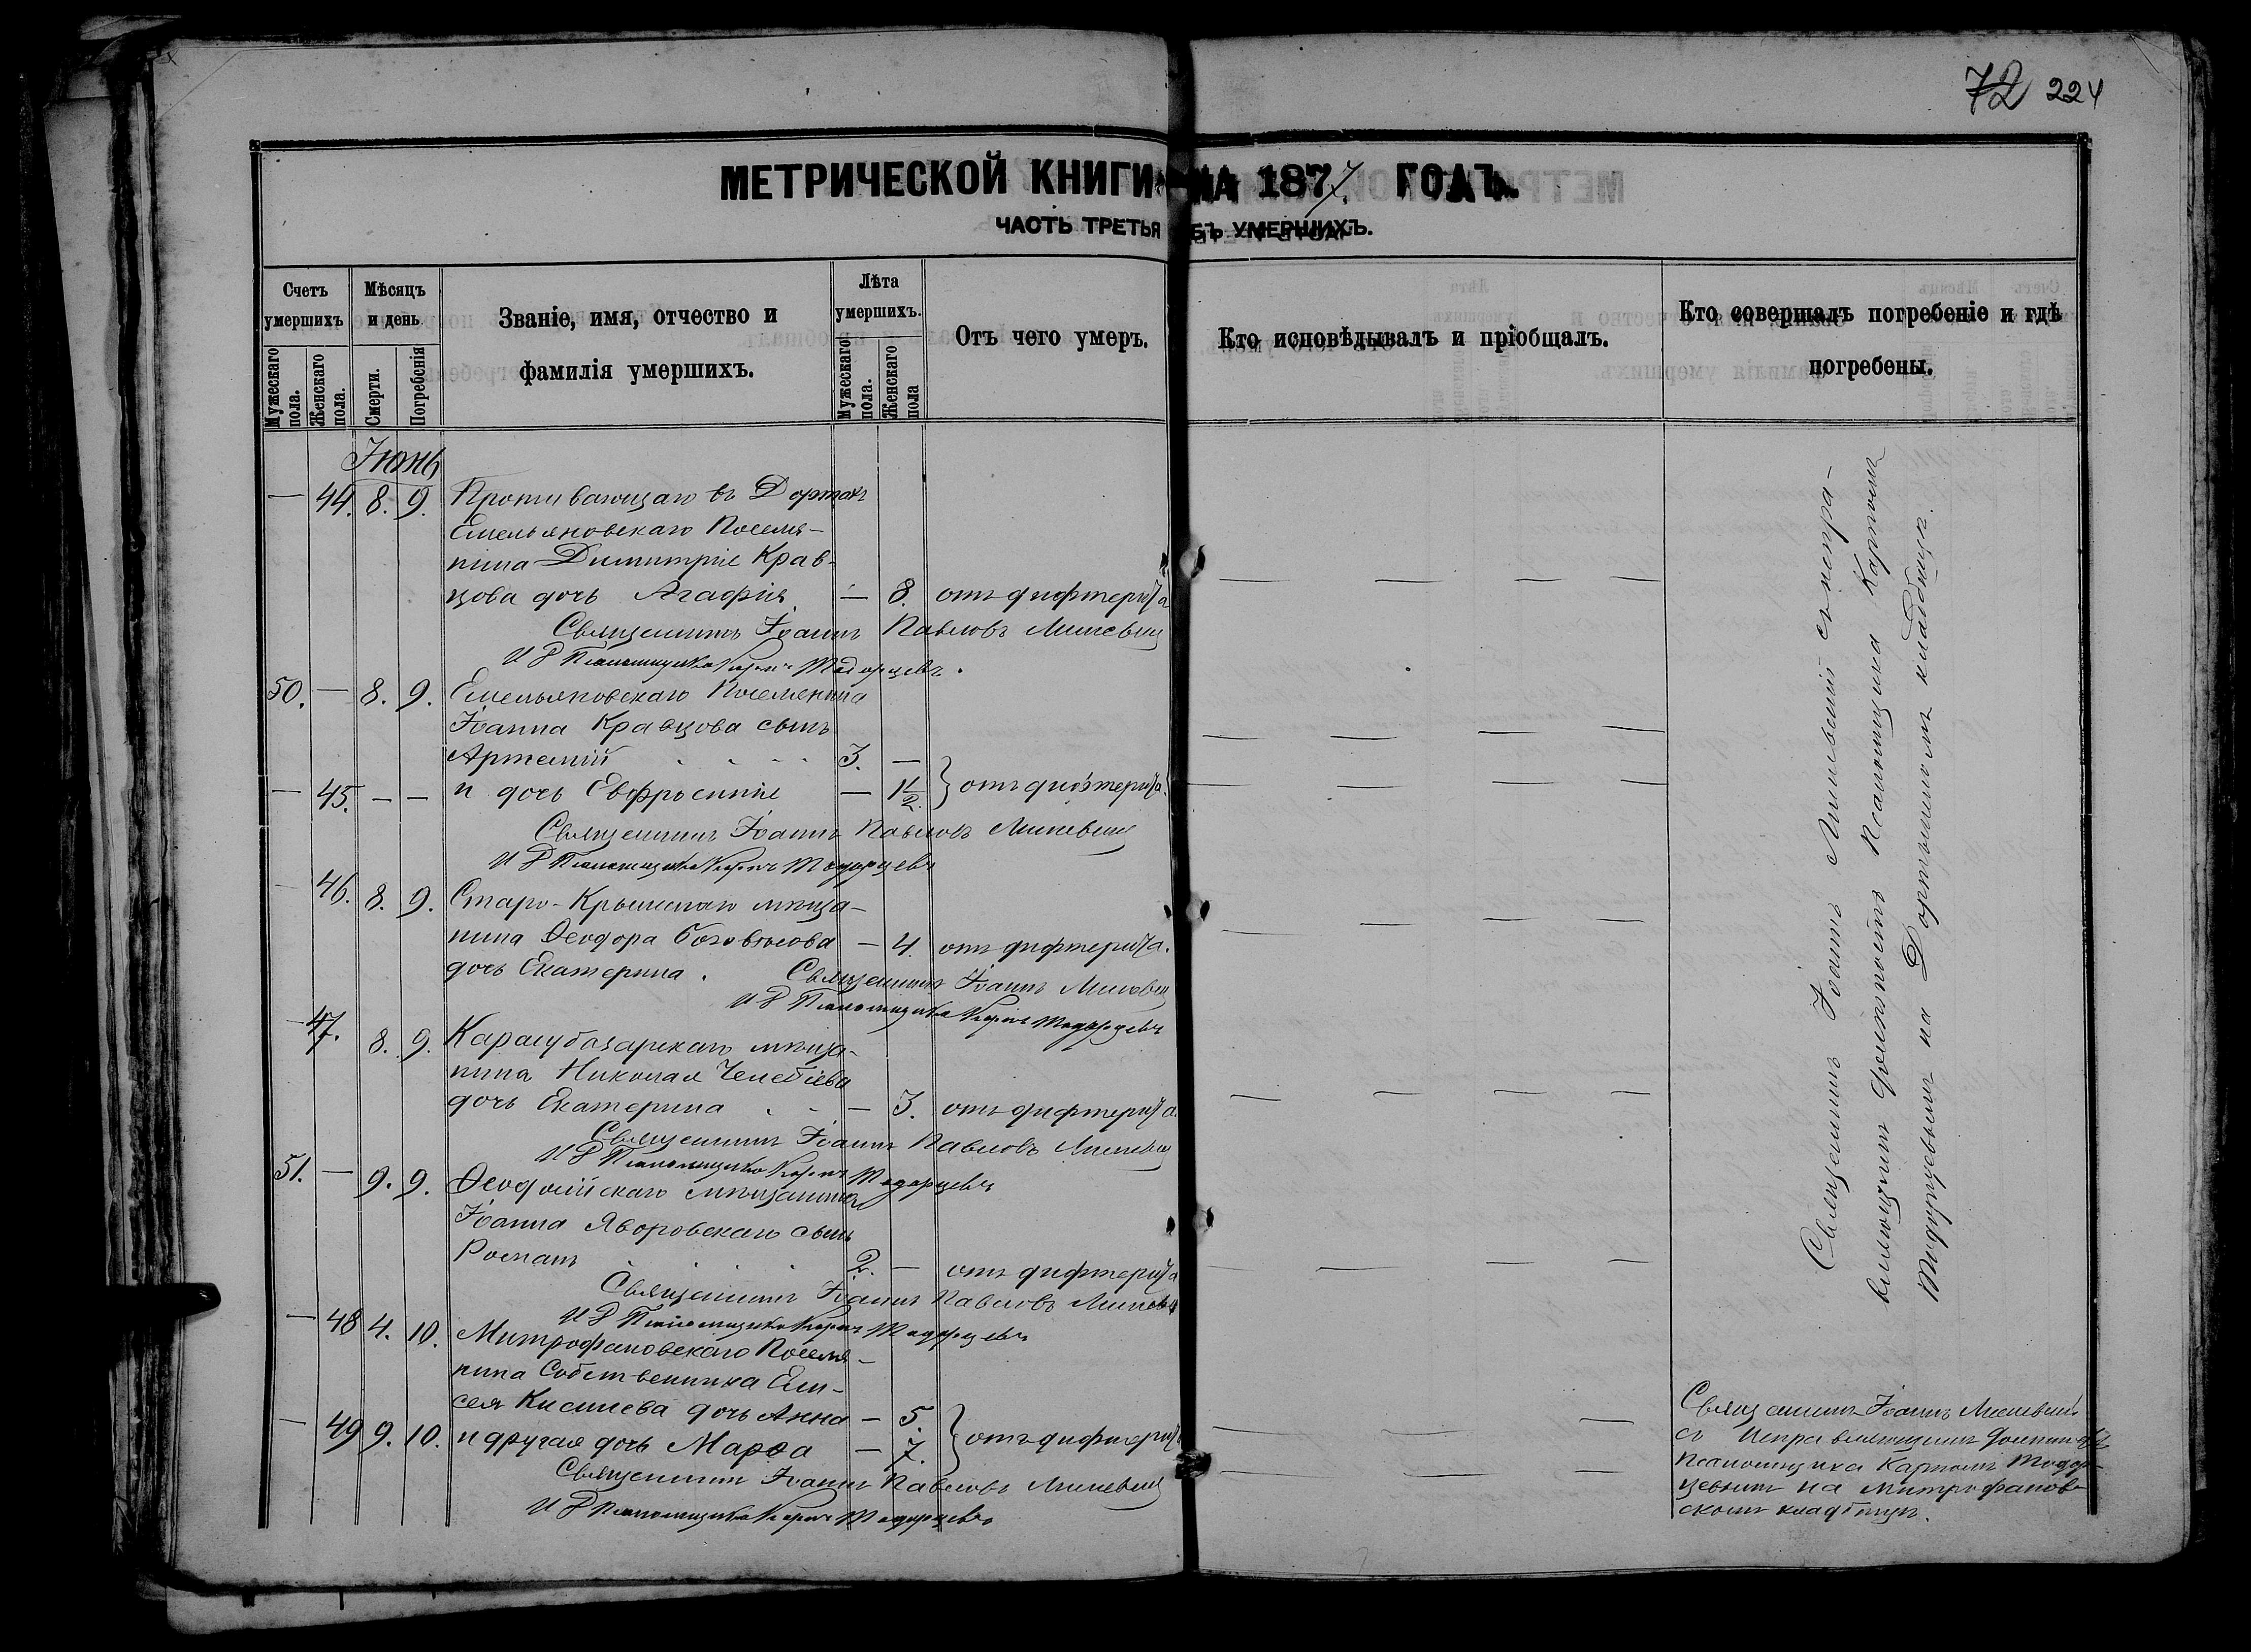 72 224
МЕТРИЧЕСКОЙ КНИГИ НА 1877. ГОДЪ.
ЧАСТЬ ТРЕТЬЯ ОБЪ УМЕРШИХЪ.
Счетъ умершихъ
Мужескаго пола.
Женскаго пола.
Мѣсяцъ и день
Смерти.
Погребенія
Званіе, имя, отчество и
фамилія умершихъ.
Лѣта умершихъ.
Мужескаго пола.
Женскаго пола
Отъ чего умеръ.
Кто исповѣдывалъ и пріобщалъ.
Кто совершалъ погребеніе и гдѣ
погребены.
Іюнь
— 44. 8. 9. Проживающаго въ Дортахъ
Емельяновскаго Поселя-
нина Димитрія Крав-
цова дочь Агафія — 8. отъ дифтерита
Священникъ Іоаннъ Павловъ
И Д Псаломщика Карпъ Тодорцевъ.
50. — 8. 9. Емельяновскаго Поселянина
Іоанна Кравцова сынъ
Артемій 3. —
— 45. — — и дочь Евфросинія — 1 1/2. } отъ дифтерита.
Священникъ Іоаннъ Павловъ
И Д Псаломщика Карпъ Тодорцевъ
— 46. 8. 9. Старо-Крымскаго мѣща-
нина Ѳеодора
дочь Екатерина. — 4. отъ дифтерита.
Священникъ Іоаннъ
И Д Псаломщика Карпъ Тодорцевъ
— 47. 8. 9. Карасубазарскаго мѣща-
нина Николая Челебіева
дочь Екатерина — 3. отъ дифтерита.
Священникъ Іоаннъ Павловъ
И Д Псаломщика Карпъ Тодорцевъ
51. — 9. 9. Ѳеодосійскаго мѣщанина
Іоанна Яворовскаго сынъ
Романъ 2. — отъ дифтерита
Священникъ Іоаннъ Павловъ
И Д Псаломщика Карпъ Тодорцевъ
— 48 4. 10. Митрофановскаго Поселя-
нина Собственника Ели-
сея Киселева дочь Анна — 5.
— 49 9. 10. и другая дочь Марѳа — 7. } отъ дифтерита
Священникъ Іоаннъ Павловъ
И Д Псаломщика Карпъ Тодорцевъ
Священникъ Іоаннъ съ испра-
вляющимъ должность Псаломщика Карпомъ
Тодорцевымъ на Дортскомъ кладбищѣ.
Священникъ Іоаннъ
съ Исправляющимъ должность
Псаломщика Карпомъ Тодор-
цевымъ на Митрофанов-
скомъ кладбищѣ.